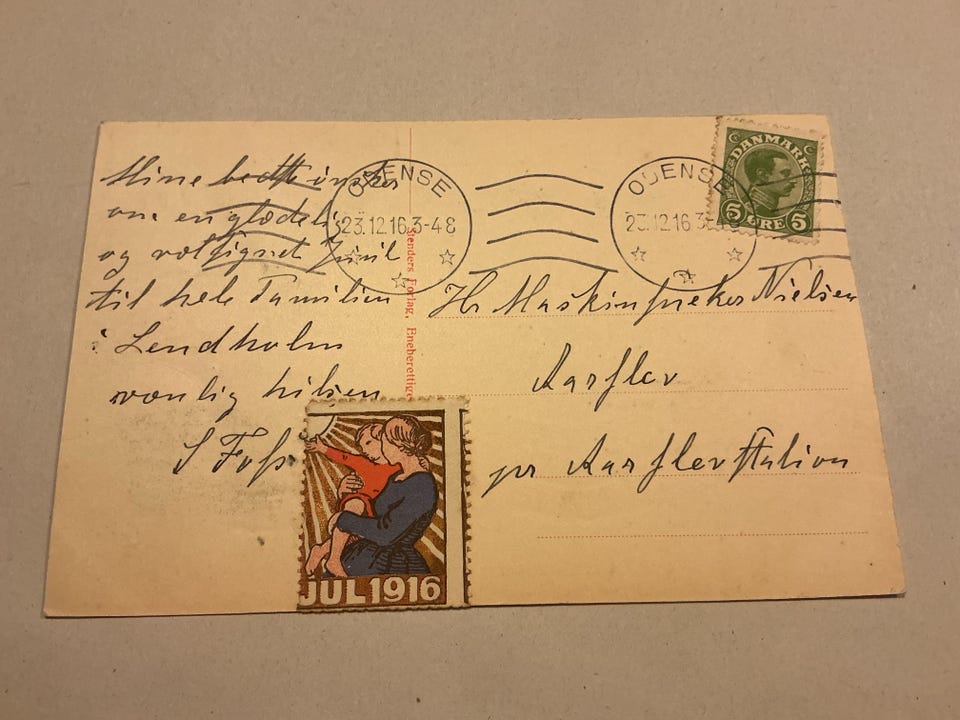 Mine bedste ønsker
om en glædelig
og velsignet Juul
til hele Familien
i Lendholm
venlig hilsen
S Foss
ODENSE
23.12.16 3-4 8
ODENSE
23.12.16 3-
DANMARK
5 ØRE 5
Stenders Forlag. Eneberettiget
Hr Maskinsnekker Nielsen
Aarslev
pr Aarslev Station
JUL 1916